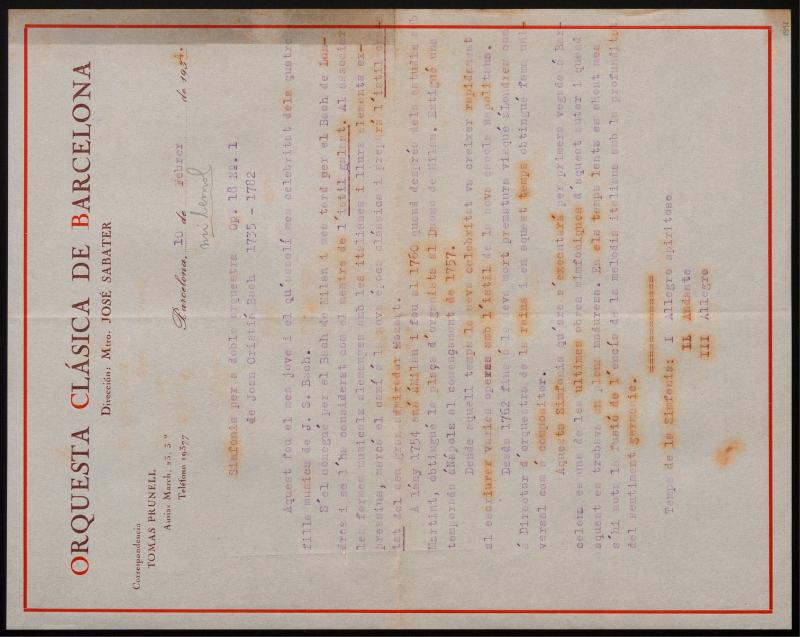 ORQUESTA CLÁSICA DE BARCELONA
Dirección: Mtro. JOSÉ SABATER
Correspondencia
TOMAS PRUNELL
Ausias March, 23, 3º
Teléfono 19377
Barcelona, 10 de Febrer de 193
Simfonia per a doble orquestra Op. 18 Nº. 1
de Joan Cristiá Bach 1735 - 1782
Aquest fou el mes jove i el qu'assolí mes celebritat dels quatre
fills musics de J. S. Bach.
S'el conegué per el Bach de Milan i mes tard per el Bach de Lon-
dres i se l'ha considerat com el mestre de l'istil galant. Al associar
les formes musicals alemanyes amb les italianes i llurs elements ex-
pressius, marcá el camí á la nova época clássica i prepará l'istil
tat del seu gran admirador Mozart.
A lány 1754 aná áMilan i fou al 1760 quand després dels estudis amb
Martini, obtingué la plaça d'organista al Duomo de Milan. Estigué una
temporada áNápols al començament de 1757.
Desde aquell temps la seva celebritat va creixer rapidament
al escriurer varies operas amb l'istil de la nova escola napolitana.
Desde 1762 fins á la seva mort prematura visqué áLondres com
á Director d'orquestra de la reina i en aquest temps obtingué fama uni-
versal com á compositor.
Aquesta Simfonia qu'ara s'executará per primera vegada á Bar-
celona es una de les ultimes obres simfoniques d'aquest autor i quand
aquest es trobava en plena maduresa. En els temps lents es ahont mes
s'hi nota la fusió de l'encís de la melodia italiana amb la profunditat
del sentiment germanic.
==========
Temps de la Simfonia: I Allegro spiritoso
II Andante
III Allegro